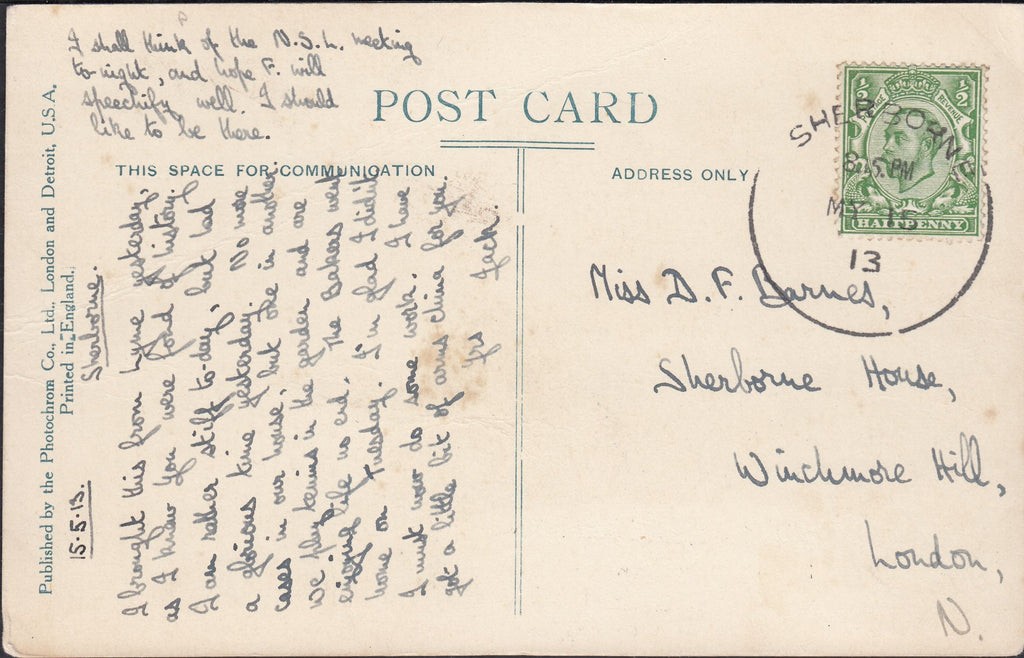 I shall think of the N.S.L. meeting
to-night, and hope F. will
speechify well. I should
like to be there.
POST CARD
THIS SPACE FOR COMMUNICATION
ADDRESS ONLY
Published by the Photochrom Co., Ltd., London and Detroit, U.S.A.
Printed in England.
15.5.13. Sherborne.
I brought this from Lyme yesterday,
as I knew you were fond of history.
I am rather stiff to-day, but had
a glorious time yesterday. No more
cases in our house, but one in another.
We play tennis in the garden and are
enjoying life no end. The Bakers went
home on Tuesday. I'm glad I didn't
I must now do some work. I have
got a little bit of arms china for you.
Yrs Jack.
½ POSTAGE REVENUE ½
HALFPENNY
SHERBORNE
8.15 PM
MY 15
13
Miss D. F. Barnes,
Sherborne House,
Winchmore Hill,
London,
N.